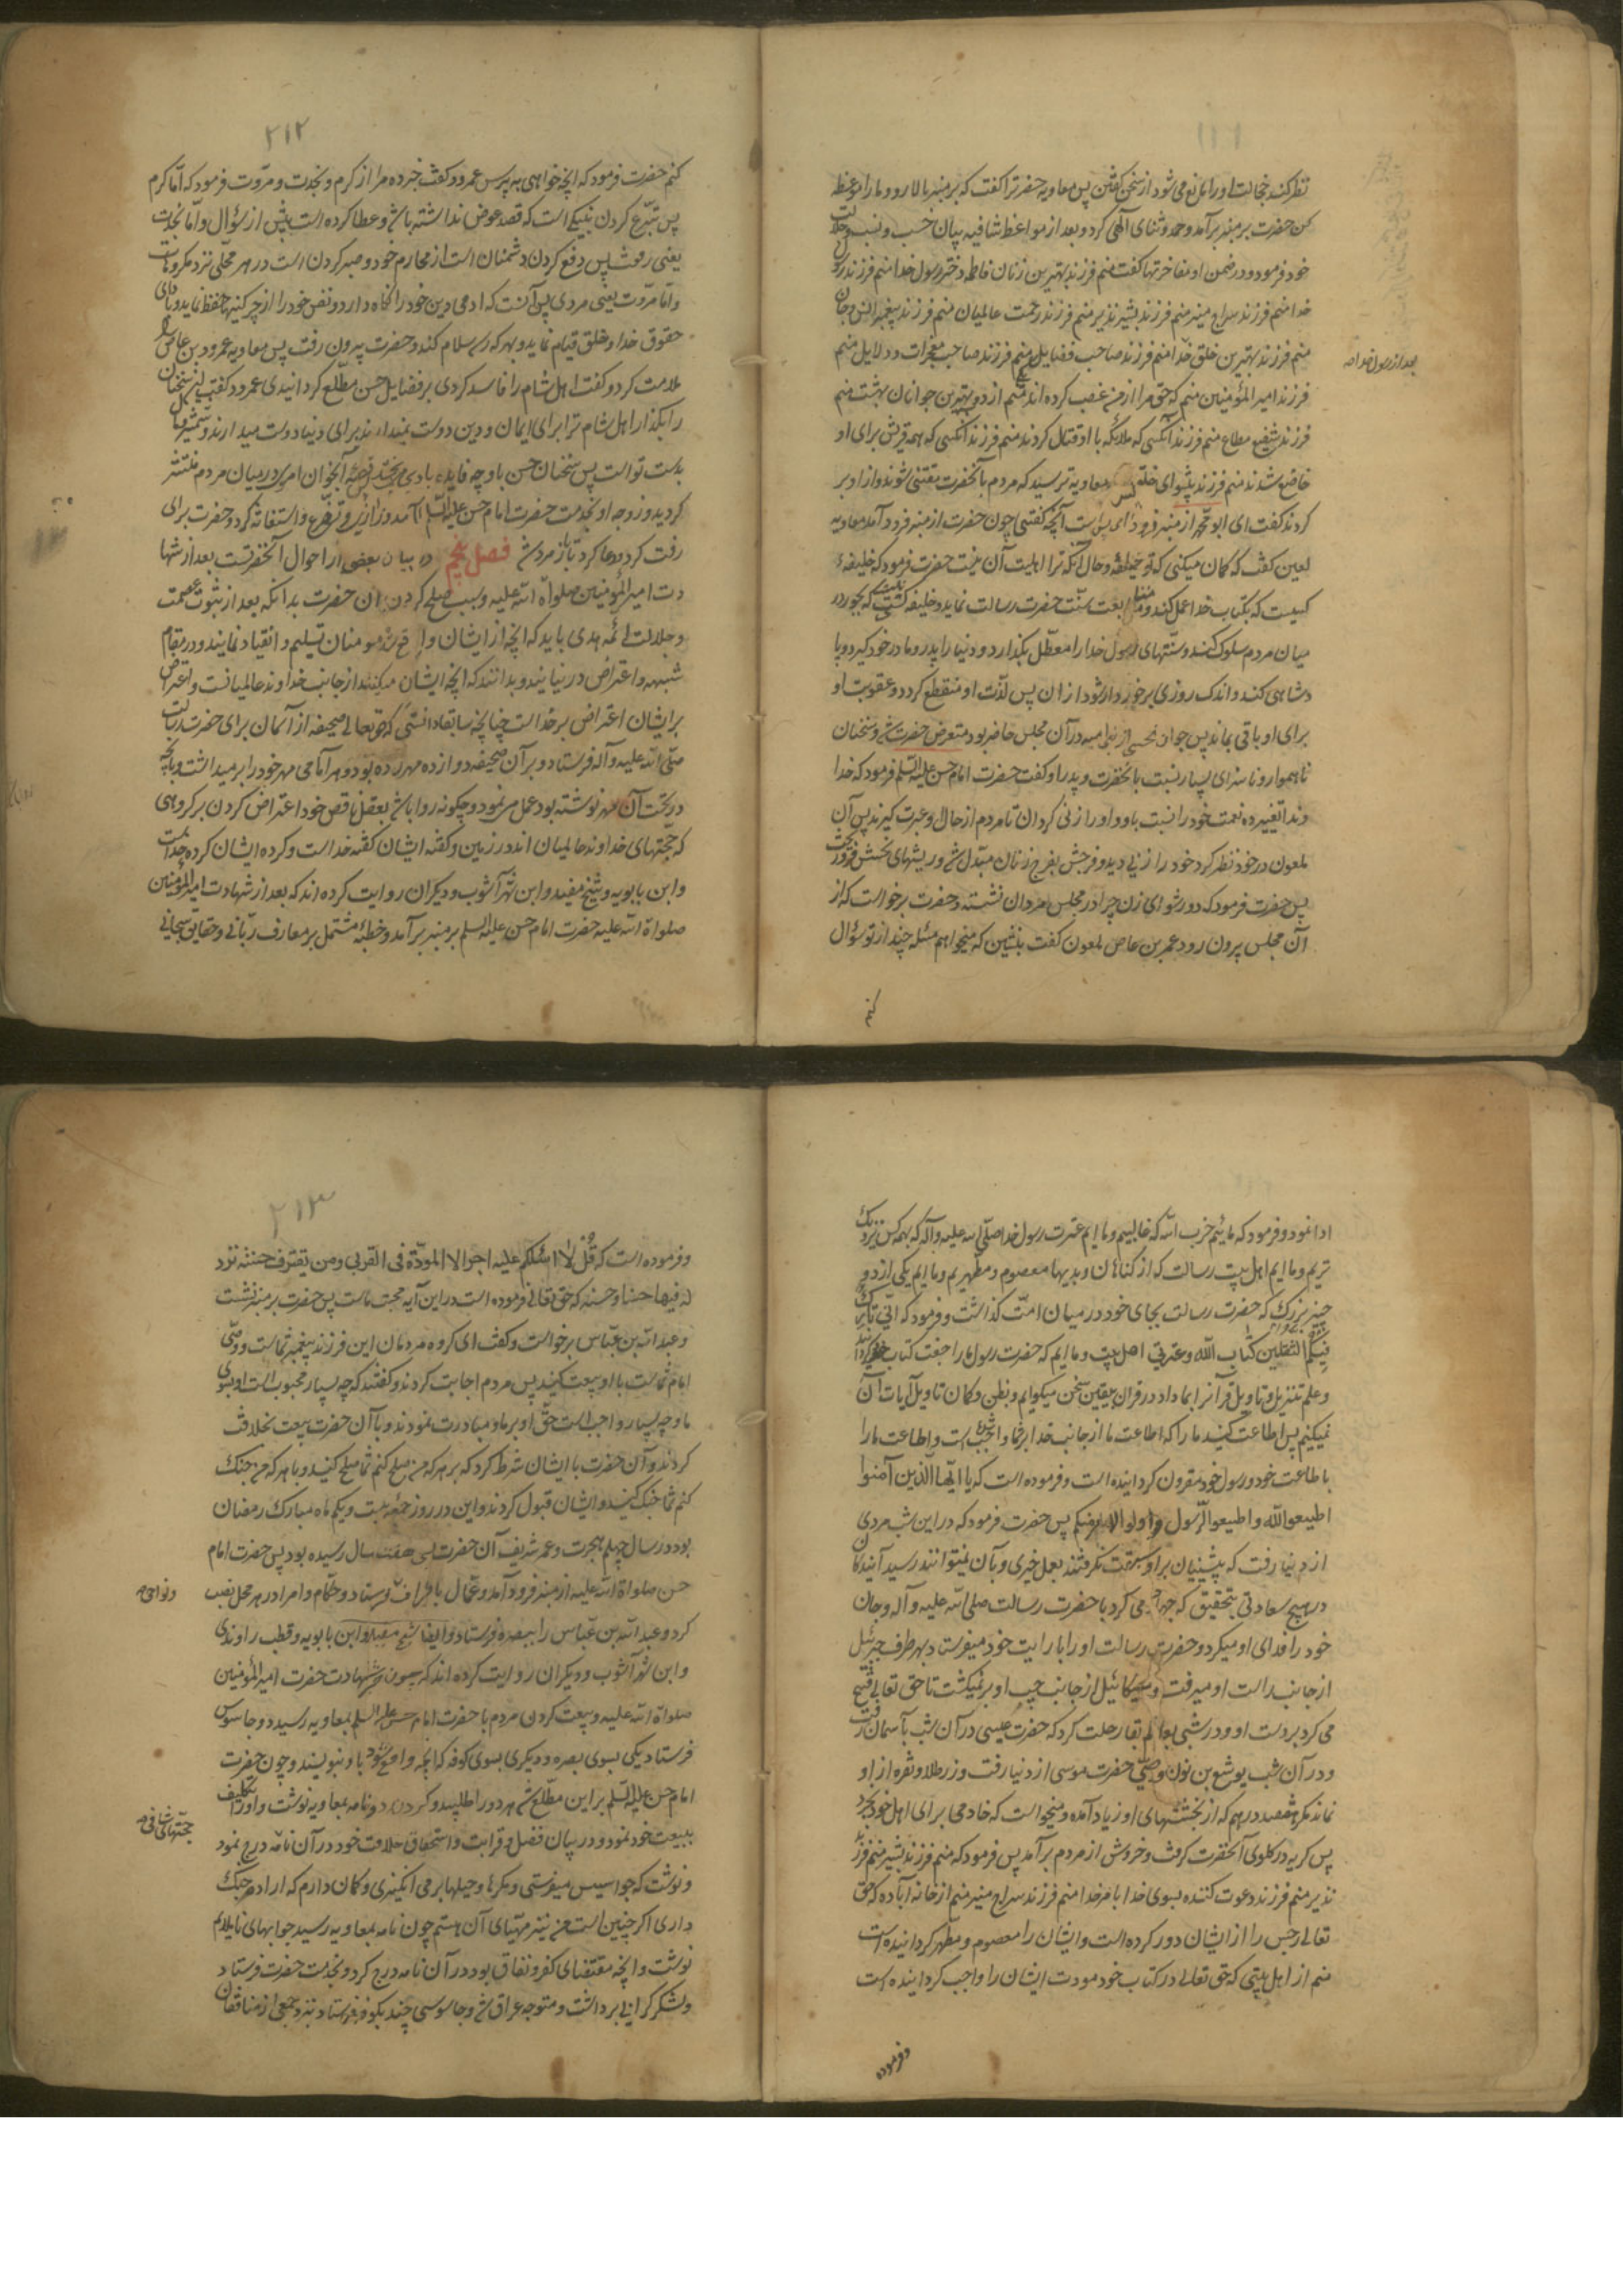 نظر کند خجالت او را مانع می شود از سخن گفتن پس معاویه حضرترا گفت که بر منبر بالا رو و ما را موعظه
کن حضرت بر منبر برآمد و حمد و ثنای الهی کرد و بعد از مواعظ شافیه بیان حسب و نسب و جلالت
خود فرمود و در ضمن او مفاخرتها گفت منم فرزند بهترین زنان فاطمه دختر رسول خدا منم فرزند رسول
خدا منم فرزند سراج منیر منم فرزند بشیر نذیر منم فرزند رحمت عالمیان منم فرزند پیغمبر انس و جان
منم فرزند بهترین خلق خدا منم فرزند صاحب فضایل منم فرزند صاحب معجزات و دلایل منم
بعد از رسول خدا
فرزند امیر المؤمنین منم که حق مرا از من غصب کرده اند منم یکی از دو بهترین جوانان بهشت منم
فرزند شفیع مطاع منم فرزند آنکسی که ملائکه با او قتال کردند منم فرزند آنکسی که همه قریش برای او
خاضع شدند منم فرزند پیشوای خلق پس معاویه ترسید که مردم بآنحضرت مفتتن شوند و از او بر
کردند گفت ای ابو محمد از منبر فرود آی بس است آنچه گفتی چون حضرت از منبر فرود آمد معاویه
لعین گفت که گمان میکنی که تو خلیفه و حال آنکه ترا اهلیت آن نیست حضرت فرمود که خلیفه
کسیست که بکتاب خدا عمل کند و متابعت سنّت حضرت رسالت نماید و خلیفه نیست که بجور در
میان مردم سلوک کند و سنّتهای رسول خدا را معطّل بگذارد و دنیا را پدر و مادر خود گیرد و پا
دشاهی کند و اندک روزی برخوردار شود از ان پس لذّت او منقطع گردد و عقوبت او
برای او باقی بماند پس جوان از بنی امیه در آن مجلس حاضر بود متعرض حضرت شد و سخنان
ناهموار و ناسزای بسیار نسبت بانحضرت و پدر او گفت حضرت امام حسن علیه السلم فرمود که خدا
وندا تغییر ده نعمت خود را نسبت باو و او را زنی گردان تا مردم از حال او عبرت گیرند پس آن
ملعون در خود نظر کرد خود را زنی دید و فرجش بفرج زنان مبدّل شد و ریشهای نحسش فرو ریخت
پس حضرت فرمود که دور شو ای زن چرا در مجلس مردان نشسته و حضرت برخواست که از
آن مجلس بیرون رود عمر بن عاص ملعون گفت بنشین که میخواهم مسئله چند از تو سؤال
کنم
۲۱۲
کنم حضرت فرمود که انچه خواهی بپرس عمرو گفت خبر ده مرا از کرم و نجدت و مروّت فرمود که امّا کرم
پس تبرّع کردن بنیکی است که قصد عوض نداشته باشی و عطا کرده است پیش از سؤال و امّا نجدت
یعنی رفعت پس دفع کردن دشمنان است از محارم خود و صبر کردن است در هر محلّی نزد مکروهات
و امّا مروّت یعنی مردی پس آنست که ادمی دین خود را نگاه دارد و نفس خود را از چرکینها حفظ نماید و بادای
حقوق خدا و خلق قیام نماید و بهر که رسد سلام کند و حضرت بیرون رفت پس معاویه عمرو بن عاص را
ملامت کرد و گفت اهل شام را فاسد کردی بر فضایل حسن مطّلع گردانیدی عمرو گفت این سخنان
را بگذار اهل شام ترا برای ایمان و دین دوست نمیدارند برای دنیا دوست میدارند و شمشیر و مال
بدست تو است پس سخنان حسن باو چه فایده پس قصّه آنجوان اموی در میان مردم منتشر
گردید و زوجه او بخدمت حضرت امام حسن علیه السلم آمد و زاری و تضرّع و استغاثه کرد و حضرت برای
رقت کرد و دعا کرد تا باز مرد شد فصل پنجم در بیان بعضی از احوال آنحضرتست بعد از شها
دت امیر المؤمنین صلواة الله علیه و سبب صلح کردن ان حضرت بدانکه بعد از ثبوت عصمت
و جلالت ائمه هدی باید که انچه از ایشان واقع شود مومنان تسلیم و انقیاد نمایند و در مقام
شبهه و اعتراض در نیایند و بدانند که انچه ایشان میکنند از جانب خداوند عالمیانست و اعتراض
بر ایشان اعتراض بر خداست چنانچه سابقا دانستی که حقتعالی صحیفه از آسمان برای حضرت رسالت
صلّی الله علیه و آله فرستاد و بر آن صحیفه دوازده مهر زده بود و هر امامی مهر خود را بر میداشت و بانچه
در تحت آن مهر نوشته بود عمل می نمود و چگونه روا باشد بعقل ناقص خود اعتراض کردن بر گروهی
که حجتهای خداوند عالمیان اند در زمین و گفته ایشان گفته خداست و کرده ایشان کرده خداست
و ابن بابویه و شیخ مفید و ابن شهر آشوب و دیگران روایت کرده اند که بعد از شهادت امیر المؤمنین
صلواة الله علیه حضرت امام حسن علیه السلم بر منبر برآمد و خطبه مشتمل بر معارف ربّانی و حقایق سبحانی
ادا نمود و فرمود که مائیم حزب الله که غالبیم و ما ایم عترت رسول خدا صلّی الله علیه و آله که بهمه کس نزدیک
تریم و ما ایم اهل بیت رسالت که از گناهان و بدیها معصوم و مطهّریم و ما ایم یکی از دو
چیز بزرگ که حضرت رسالت بجای خود در میان امّت گذاشت و فرمود که انّی تارک
فیکم الثقلین کتاب الله و عترتی اهل بیتی و ما ایم که حضرت رسول ما را جفت کتاب خدا گردانید
و علم تنزیل و تاویل قرآنرا بما داد در قران بیقین سخن میگوئیم و بظن و گمان تاویل آیات آن
نمیکنیم پس اطاعت کنید ما را که اطاعت ما از جانب خدا بر شما واجب شده است و اطاعت ما را
با طاعت خود و رسول خود مقرون گردانیده است و فرموده است که یا ایّها الّذین آمنوا
اطیعوا الله و اطیعوا الرّسول و اولوالامر منکم پس حضرت فرمود که در این شب مردی
از دنیا رفت که پیشینیان بر او سبقت نگرفتند بعمل خیری و بآن نمیتوانند رسید آیندگان
در هیچ سعادتی بتحقیق که جهاد می کرد با حضرت رسالت صلی الله علیه و آله و جان
خود را فدای او میکرد و حضرت رسالت او را با رایت خود میفرستاد بهر طرف جبرئیل
از جانب راست او میرفت و میکائیل از جانب چپ او بر نمیگشت تا حق تعالی فتح
می کرد بر دست او و در شبی بعالم بقا رحلت کرد که حضرت عیسی در آن شب بآسمان رفت
و در آن شب یوشع بن نون وصیّ حضرت موسی از دنیا رفت و زر طلا و نقره از او
نماند مگر هفتصد درهم که از بخششهای او زیاد آمده و میخواست که خادمی برای اهل خود بخرد
پس گریه در گلوی آنحضرت گرفت و خروش از مردم برآمد پس فرمود که منم فرزند بشیر منم فرزند
نذیر منم فرزند دعوت کننده بسوی خدا بامر خدا منم فرزند سراج منیر منم از خانه آباده که حق
تعالی رجس را از ایشان دور کرده است و ایشان را معصوم و مطهّر گردانیده است
منم از اهل بیتی که حق تعالی در کتاب خود مودت ایشان را واجب گردانیده است
و فرموده
۲۱۳
و فرموده است که قُل لا اسئلکم علیه اجرا الا المودّة فی القربی و من یقترف حسنة نزد
له فیها حسنا و حسنه که حق تعالی فرموده است در این آیه محبت ماست پس حضرت بر منبر نشست
و عبد الله بن عبّاس برخواست و گفت ای گروه مردمان این فرزند پیغمبر شماست و وصّی
امام شماست با او بیعت کنید پس مردم اجابت کردند و گفتند که چه بسیار محبوب است او بسوی
ما و چه بسیار واجب است حقّ او بر ما و مبادرت نمودند و با آن حضرت بیعت بخلافت
کردند و آن حضرت با ایشان شرط کرد که بر هر که من صلح کنم شما صلح کنید و با هر که من جنک
کنم شما جنک کنید و ایشان قبول کردند و این در روز جمعه بیست و یکم ماه مبارک رمضان
بود در سال چهلم هجرت و عمر شریف آن حضرت بسی هفت سال رسیده بود پس حضرت امام
حسن صلواة الله علیه از منبر فرود آمد و عمّال باطراف فرستاد و حکّام و امرا در هر محل نصب
و نواحی
کرد و عبد الله بن عبّاس را ببصره فرستاد و ایضا شیخ مفید و ابن بابویه و قطب راوندی
و ابن شهر آشوب و دیگران روایت کرده اند که چون خبر شهادت حضرت امیر المؤمنین
صلواة الله علیه و بیعت کردن مردم با حضرت امام حسن علیه السلم بمعاویه رسید دو جاسوس
فرستاد یکی بسوی بصره و دیگری بسوی کوفه که انچه واقع شود باو بنویسند و چون حضرت
امام حسن علیه السّلم بر این مطّلع شد هر دو را طلبید و گردن زد و نامه بمعاویه نوشت و او را تکلیف
ببیعت خود نمود و در بیان فضل و قرابت و استحقاق خلافت خود در آن نامه درج نمود
حجتهای شافی
و نوشت که جواسیس میفرستی و مکرها و حیلها بر می انگیزی و گمان دارم که اراده جنک
داری اگر چنین است من نیز مهیّای آن هستم چون نامه بمعاویه رسید جوابهای ناملایم
نوشت و انچه مقتضای کفر و نفاق بود در آن نامه درج کرد و بخدمت حضرت فرستاد
و لشکر گرانی برداشت و متوجه عراق شد و جاسوسی چند بکوفه فرستاد نزد جمعی از منافقان